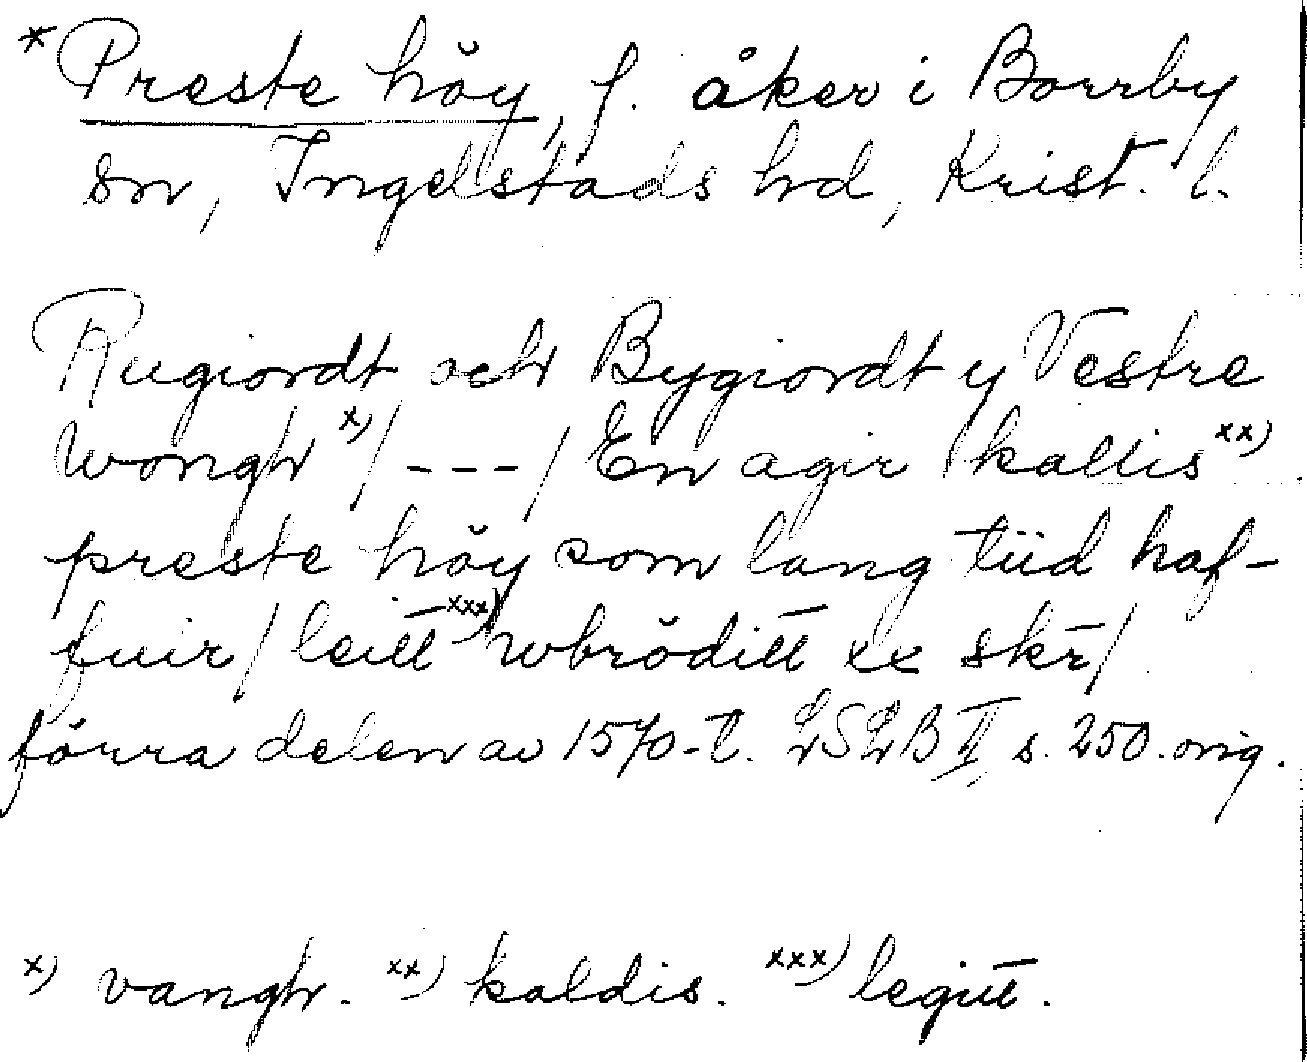 *Preste höy, f. åker i Borrby
sn, Ingelstads hd, Krist. l.
Rugiordt och Bygiordt y Vestre
wongh x) / --- / En agir / kallis xx)
preste höy som lang tiid haf-
fuir / leitt xxx) wbröditt xx skr /
förra delen av 1570-t. LSLB II, s. 250. orig.
x) vangh. xx) kaldis. xxx) legitt.